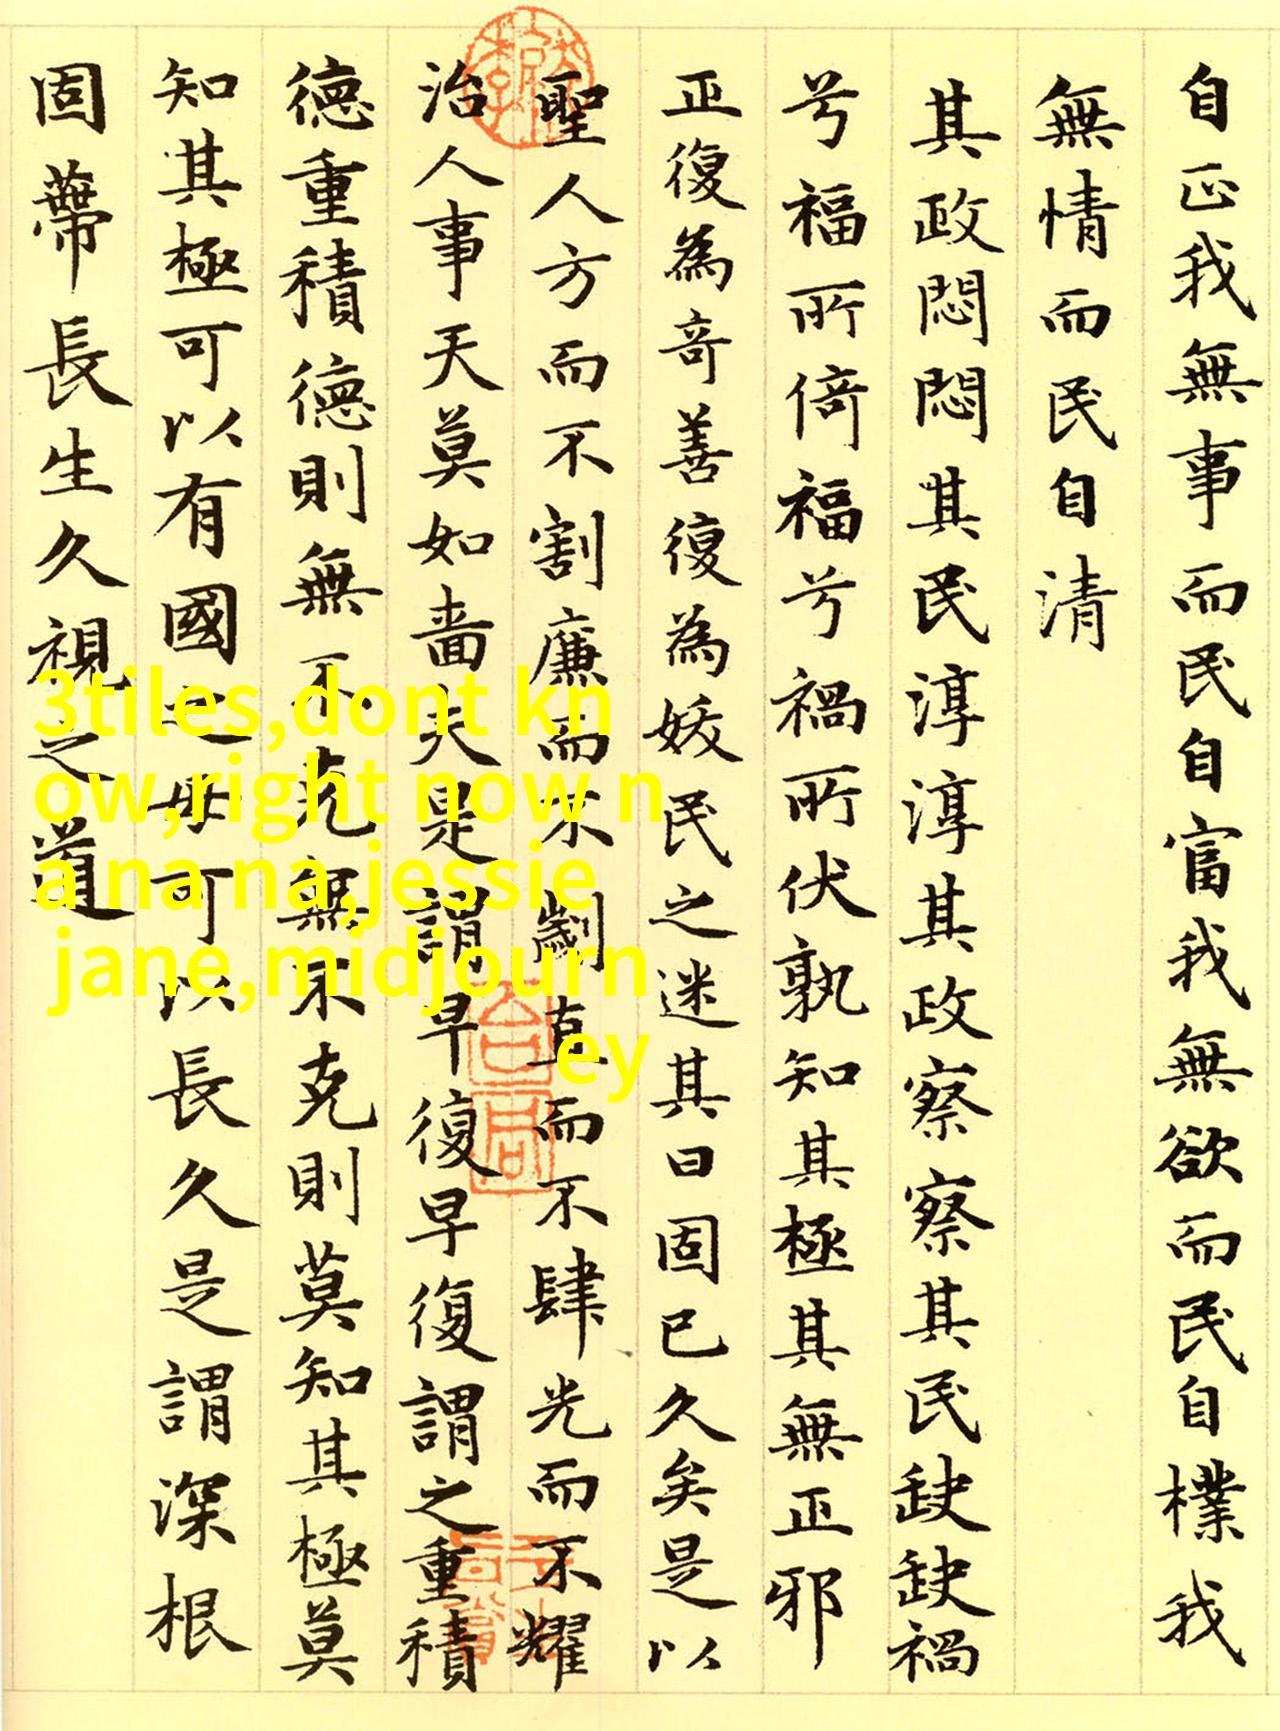 自正我無事而民自富我無欲而民自樸我
無情而民自清
其政悶悶其民淳淳其政察察其民缺缺禍
兮福所倚福兮禍所伏孰知其極其無正邪
正復為奇善復為妖民之迷其日固已久矣是以
聖人方而不割廉而不劌直而不肆光而不耀
治人事天莫如嗇夫是謂早復早復謂之重積
德重積德則無不克無不克則莫知其極莫
知其極可以有國之母可以長久是謂深根
固蔕長生久視之道
3tiles,dont kn
ow,right now n
a na na,jessie
jane,midjourn
ey